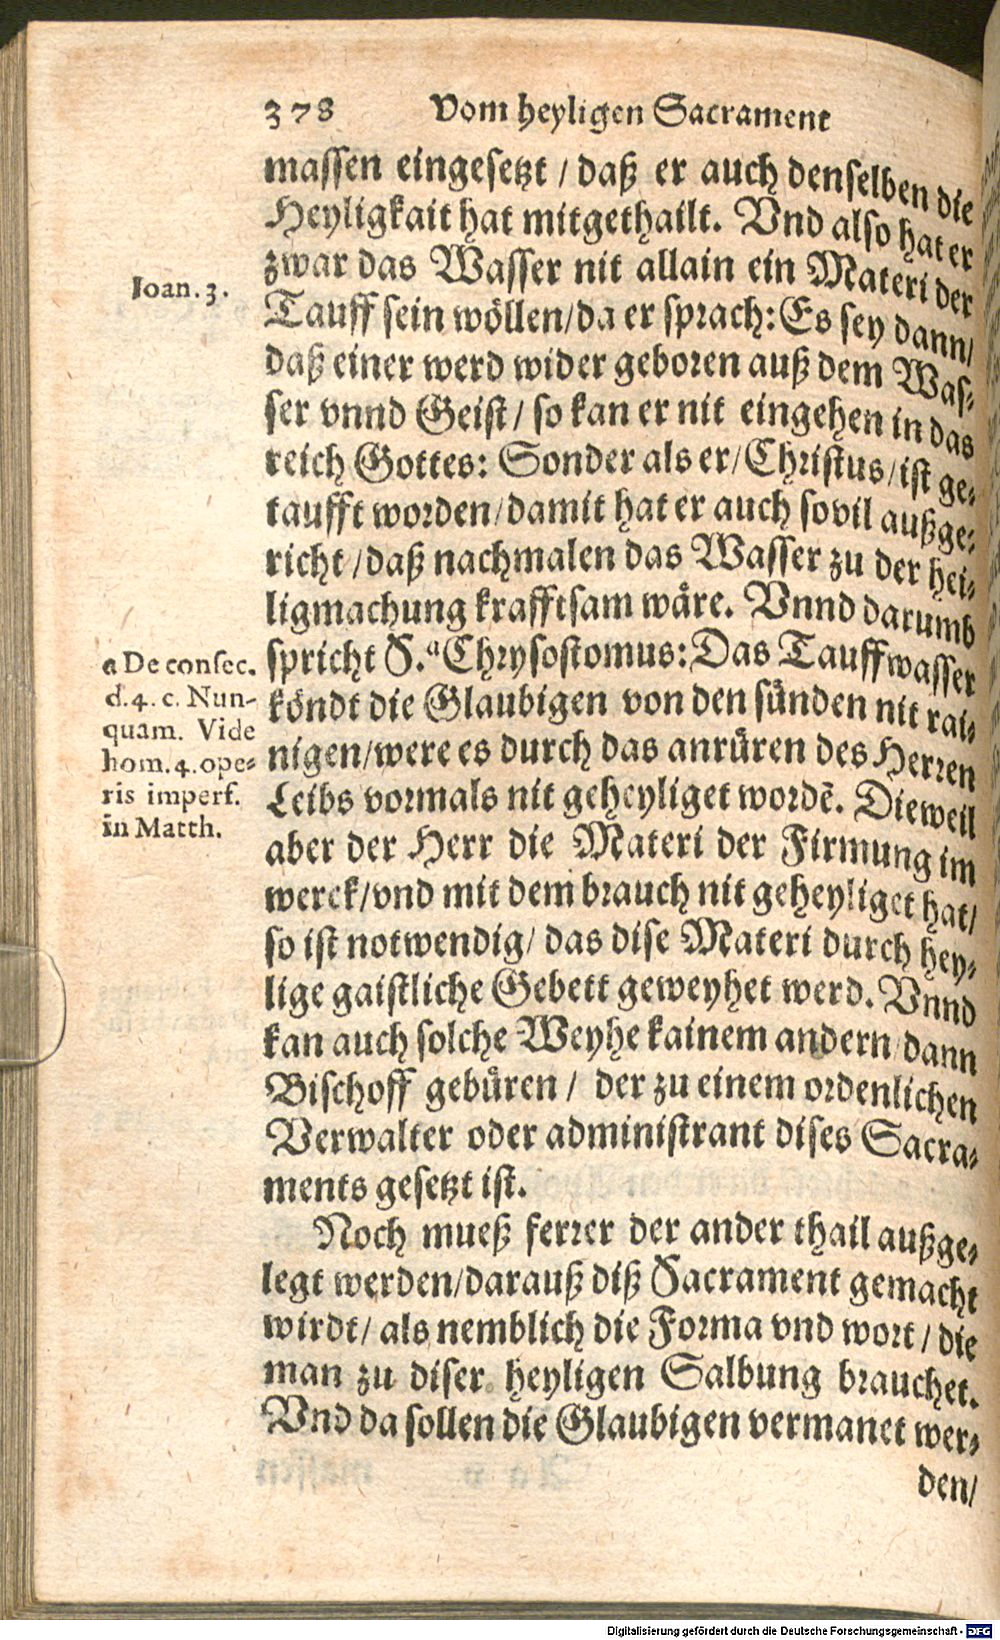 378 Vom heyligen Sacrament
massen eingesetzt / daß er auch denselben die
Heyligkait hat mitgethailt. Vnd also hat er
zwar das Wasser nit allain ein Materi der
Ioan. 3.
Tauff sein wöllen/da er sprach: Es sey dann/
daß einer werd wider geboren auß dem Was-
ser vnnd Geist / so kan er nit eingehen in das
reich Gottes: Sonder als er/Christus/ist ge-
taufft worden/damit hat er auch sovil außge-
richt /daß nachmalen das Wasser zu der hei-
ligmachung krafftsam wåre. Vnnd darumb
a De consec.
d. 4. c. Nun-
quam. Vide
hom. 4. ope-
ris imperf.
in Matth.
spricht S. a Chrysostomus: Das Tauffwasser
köndt die Glaubigen von den sünden nit rai-
nigen/were es durch das anrůren des Herren
Leibs vormals nit geheyliget wordē. Dieweil
aber der Herr die Materi der Firmung im
werck/vnd mit dem brauch nit geheyliget hat/
so ist notwendig/ das dise Materi durch hey-
lige gaistliche Gebett geweyhet werd. Vnnd
kan auch solche Weyhe kainem andern/dann
Bischoff gebůren / der zu einem ordenlichen
Verwalter oder administrant dises Sacra-
ments gesetzt ist.
Noch mueß ferrer der ander thail außge-
legt werden/darauß diß Sacrament gemacht
wirdt/ als nemblich die Forma vnd wort / die
man zu diser heyligen Salbung brauchet.
Vnd da sollen die Glaubigen vermanet wer-
den/
Digitalisierung gefördert durch die Deutsche Forschungsgemeinschaft - DFG